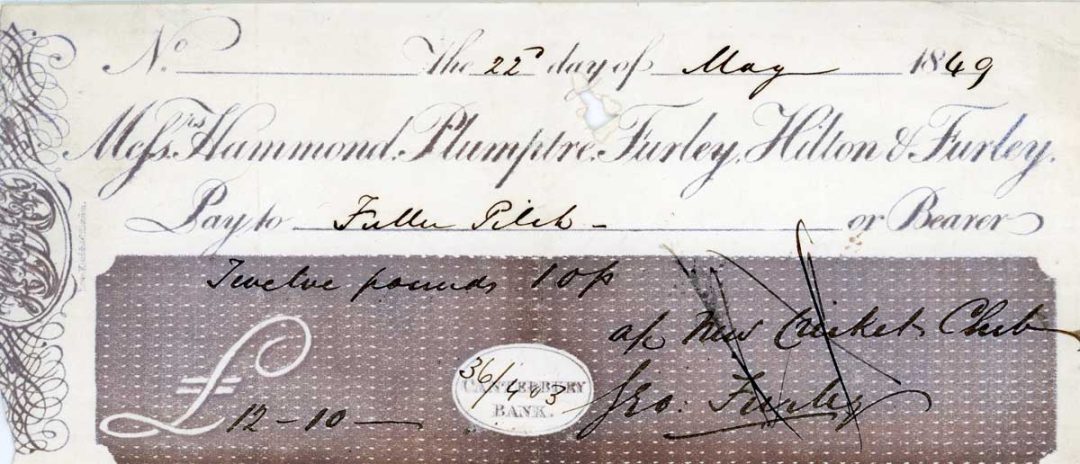 No. The 22d day of May 1849
Messrs. Hammond. Plumptre. Furley. Hilton & Furley.
Pay to Fuller Pilch - or Bearer
Twelve pounds 10/
a/c New Cricket Club
£ 12-10-
36/403
CANTERBURY
BANK.
Geo: Furley